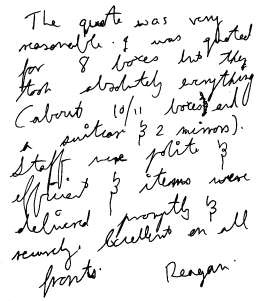 The quote was very
reasonable. I was quoted
for 8 boxes but they
took absolutely everything
(about 10/11 boxes and
a suitcase & 2 mirrors).
Staff were polite &
efficient & items were
delivered promptly &
securely. Excellent on all
fronts. Reagan.